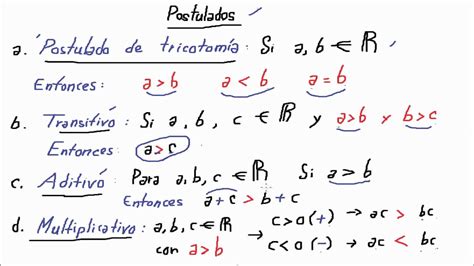 Postulados ✓
a. Postulado de tricotomía : Si a, b ∈ ℝ
Entonces : a > b a < b a = b
b. Transitivó : Si a, b, c ∈ ℝ y a > b y b > c
Entonces a > c
c. Aditivó : Para a, b, c ∈ ℝ Si a > b
Entonces a + c > b + c
d. Multiplicativo : a, b, c ∈ ℝ → c > 0 (+) → ac > bc
con a > b → c < 0 (-) → ac < bc